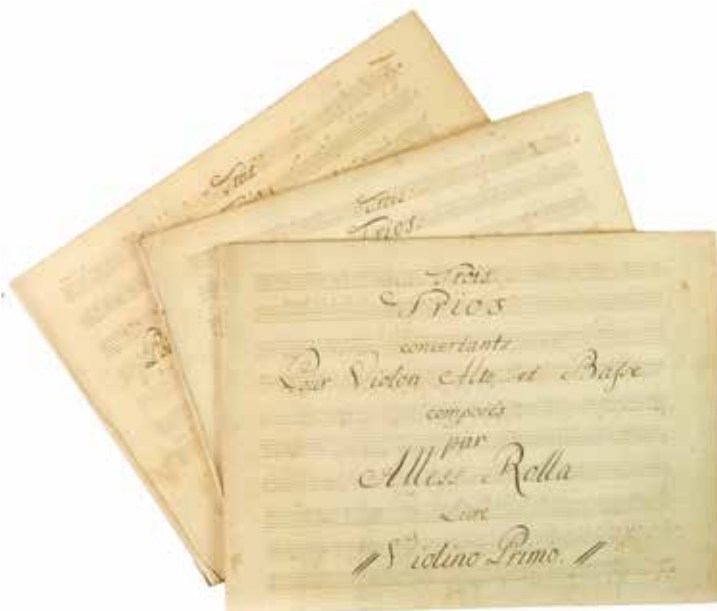 Trois
Trios
Trois
Trios
Trois
Trios
concertants
Pour Violon Alto et Basse
composés
par
Aless Rolla
Livre
// Violino Primo. //